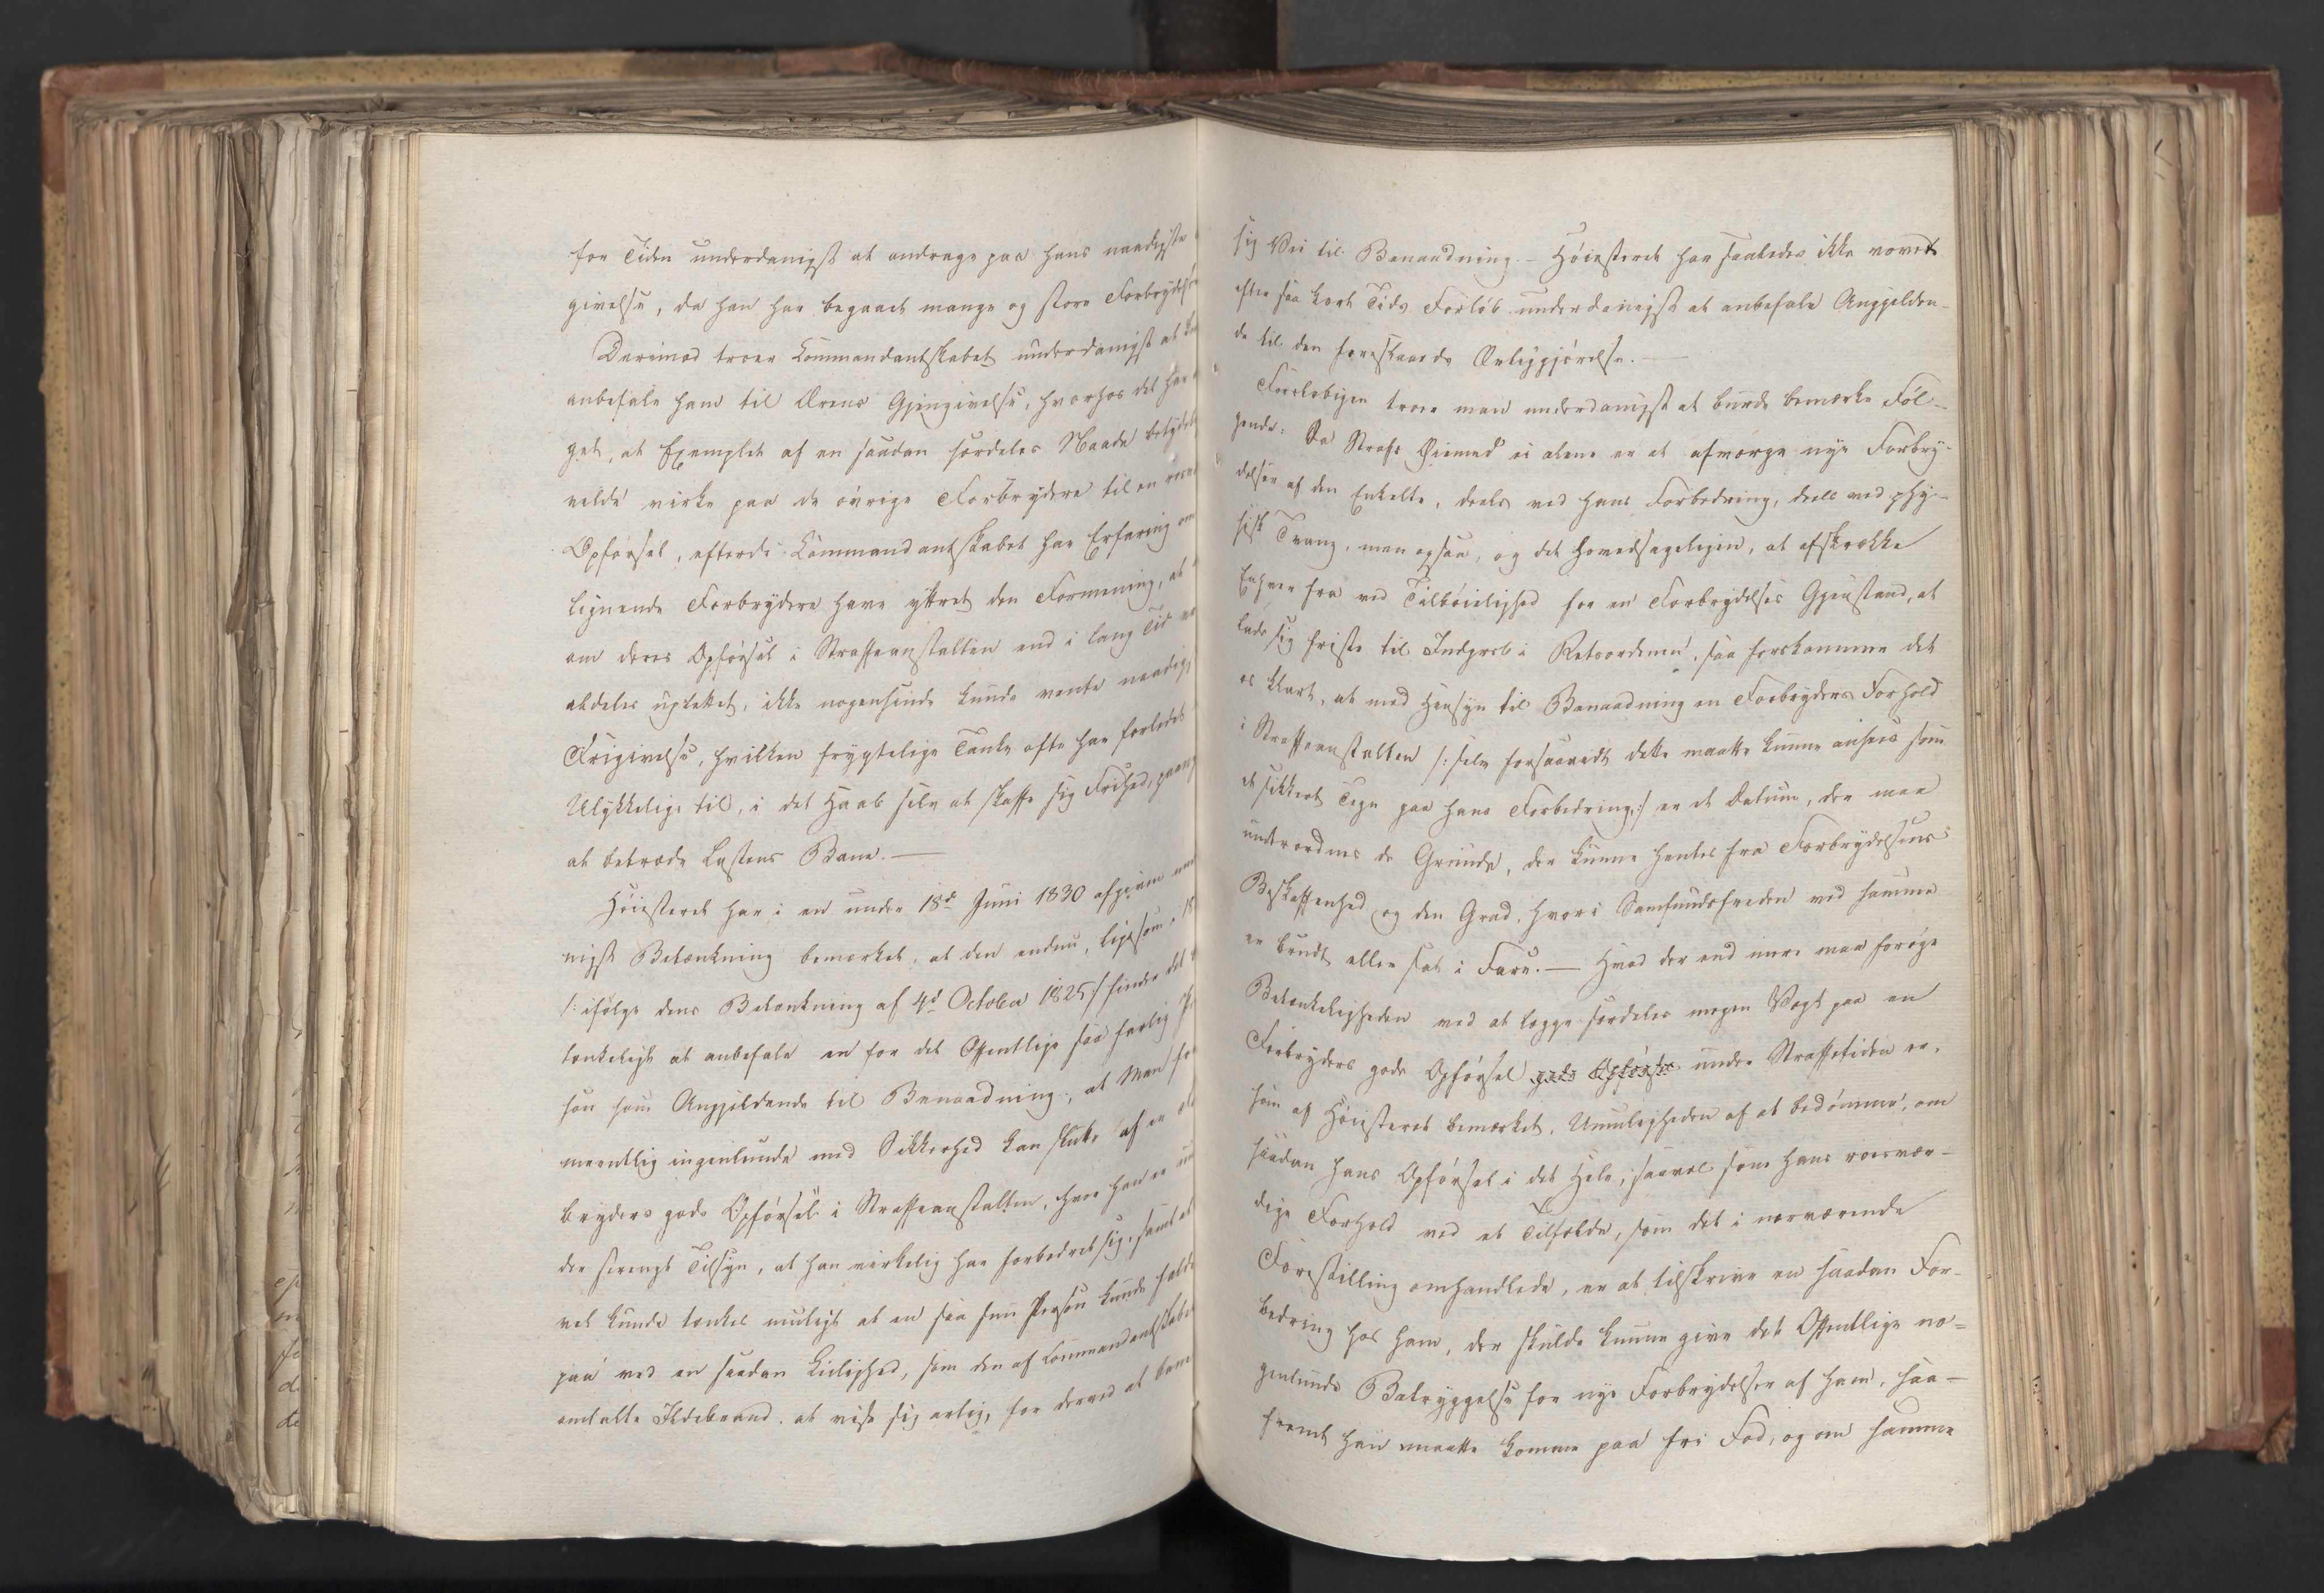 for Tiden underdanigst at andrage paa hans naadigste
givelse, da han har begaaet mange og store Forbrydelse
Derimod troer Commandantskabet underdanigst at
anbefale ham til Ærens Gjengivelse, hvorhos det har
get, at Exemplet af en saadan særdeles Naade betydel
vilde virke paa de øvrige Forbrydere til en
Opførsel, efterdi Commandantskabet har Erfaring om
lignende Forbrydere have yttret den Formening, at
om deres Opførsel i Straffeanstalten end i lang Tid
aldeles uplettet, ikke nogensinde kunde vente naadigst
Frigivelse, hvilken frygtelige Tanke ofte har forledet
Ulykkelige til, i det Haab selv at skaffe sig Frihed,
at betræde Lastens Bane. —
Høiesteret har i en under 18d Juni 1830 afgiven
nigst Betænkning bemærket, at den endnu, ligesom
/: ifølge dens Betænkning af 4d October 1825 :/ finder det
tænkeligt at anbefale en for det Offentlige saa farlig
son som Angjeldende til Benaadning, at Man
meentlig ingenlunde med Sikkerhed kan slutte af en
bryders gode Opførsel i Straffeanstalten, hvor han er
der strengt Tilsyn, at han virkelig har forbedret sig, samt at
vel kunde tænkes muligt at en saa Person kunde falde
paa ved en saadan Leilighed, som den af Commandantskabet
omtalte Ildebrand, at vise sig ærlig, for derved at bane
sig Vei til Benaadning. – Høiesteret har saaledes ikke vovet
efter saa kort Tids Forløb underdanigst at anbefale Angjelden-
de til den foreslaaede Ærliggjørelse. —
Foreløbigen troer man underdanigst at burde bemærke Føl-
gende: Da Strafs Øiemed ei alene er at afværge nye Forbry-
delser af den Enkelte, deels ved hans Forbedring, deels ved phy-
sisk Tvang, men ogsaa, og det hovedsageligen, at afskrække
Enhver fra ved Tilbøielighed for en Forbrydelses Gjenstand, at
lade sig friste til Indgreb i Retsordenen, saa forekommer det
os klart, at med Hensyn til Benaadning en Forbryders Forhold
i Straffeanstalten /: selv forsaavidt dette maatte kunne ansees som
et sikkert Tegn paa hans Forbedring :/ er et Datum, der maa
underordnes de Grunde, der kunne hentes fra Forbrydelsens
Beskaffenhed og den Grad, hvori Samfundsfreden ved samme
er brudt eller sat i Fare. — Hvad der end mere maa forøge
Betænkeligheden ved at lægge særdeles megen Vægt paa en
Forbryders gode Opførsel gode Opførsel under Straffetiden er,
som af Høiesteret bemærket, Umuligheden af at bedømme, om
saadan hans Opførsel i det Hele, saavel som hans roesvær-
dige Forhold ved et Tilfælde, som det i nærværende
Forestilling omhandlede, er at tilskrive en saadan For-
bedring hos ham, der skulde kunne give det Offentlige no-
genlunde Betryggelse for nye Forbrydelser af ham, saa-
fremt han maatte komme paa fri Fod, og om samme